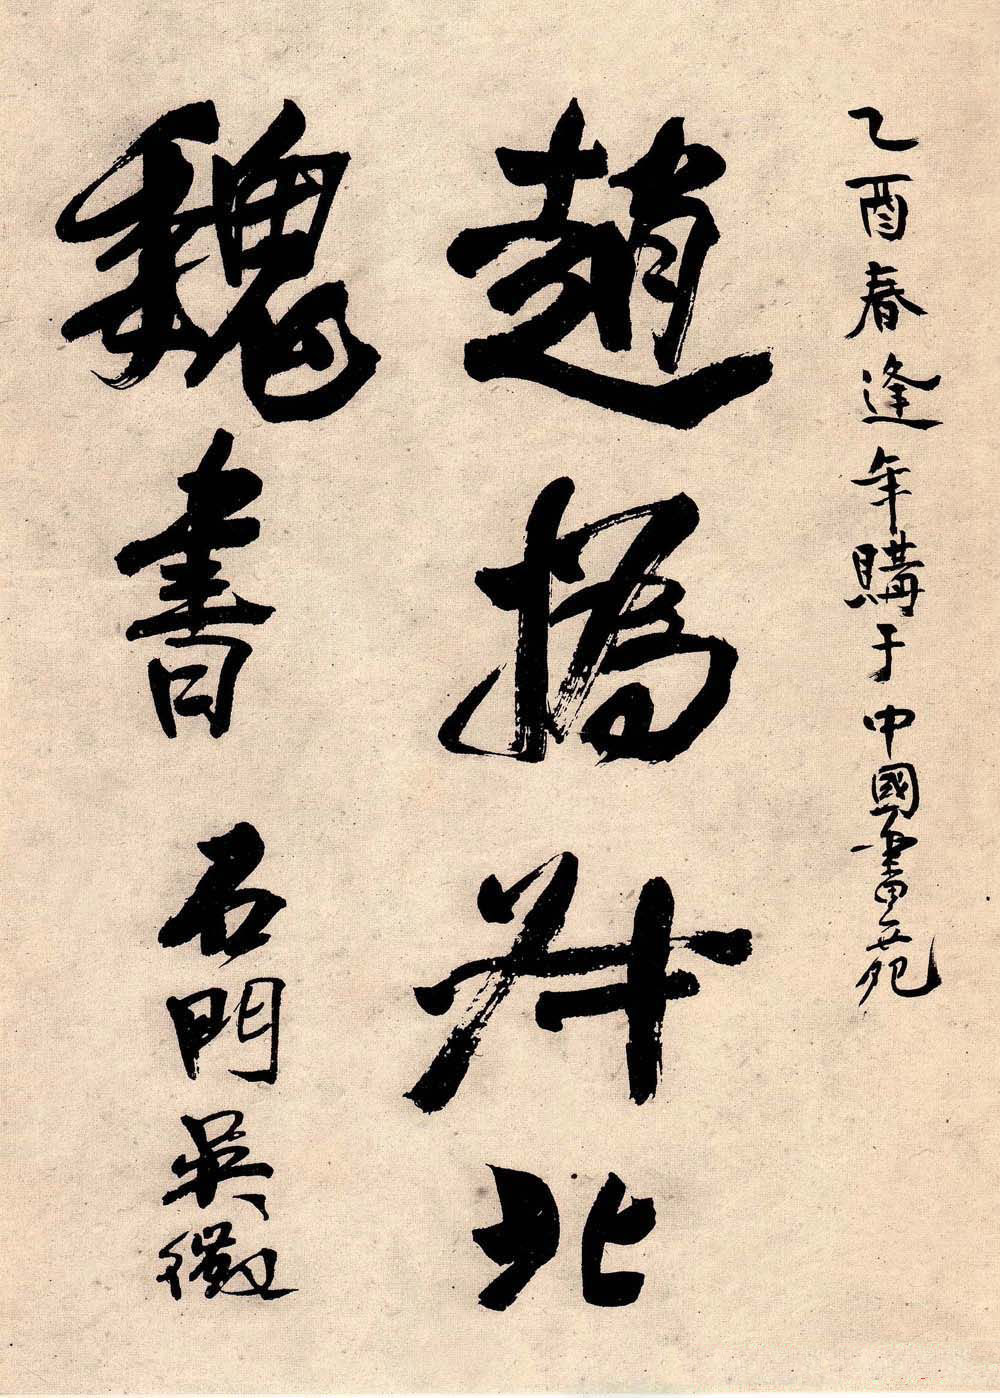 乙酉春逢年購于中國畫苑
趙撝叔北
魏書 石門吳徵